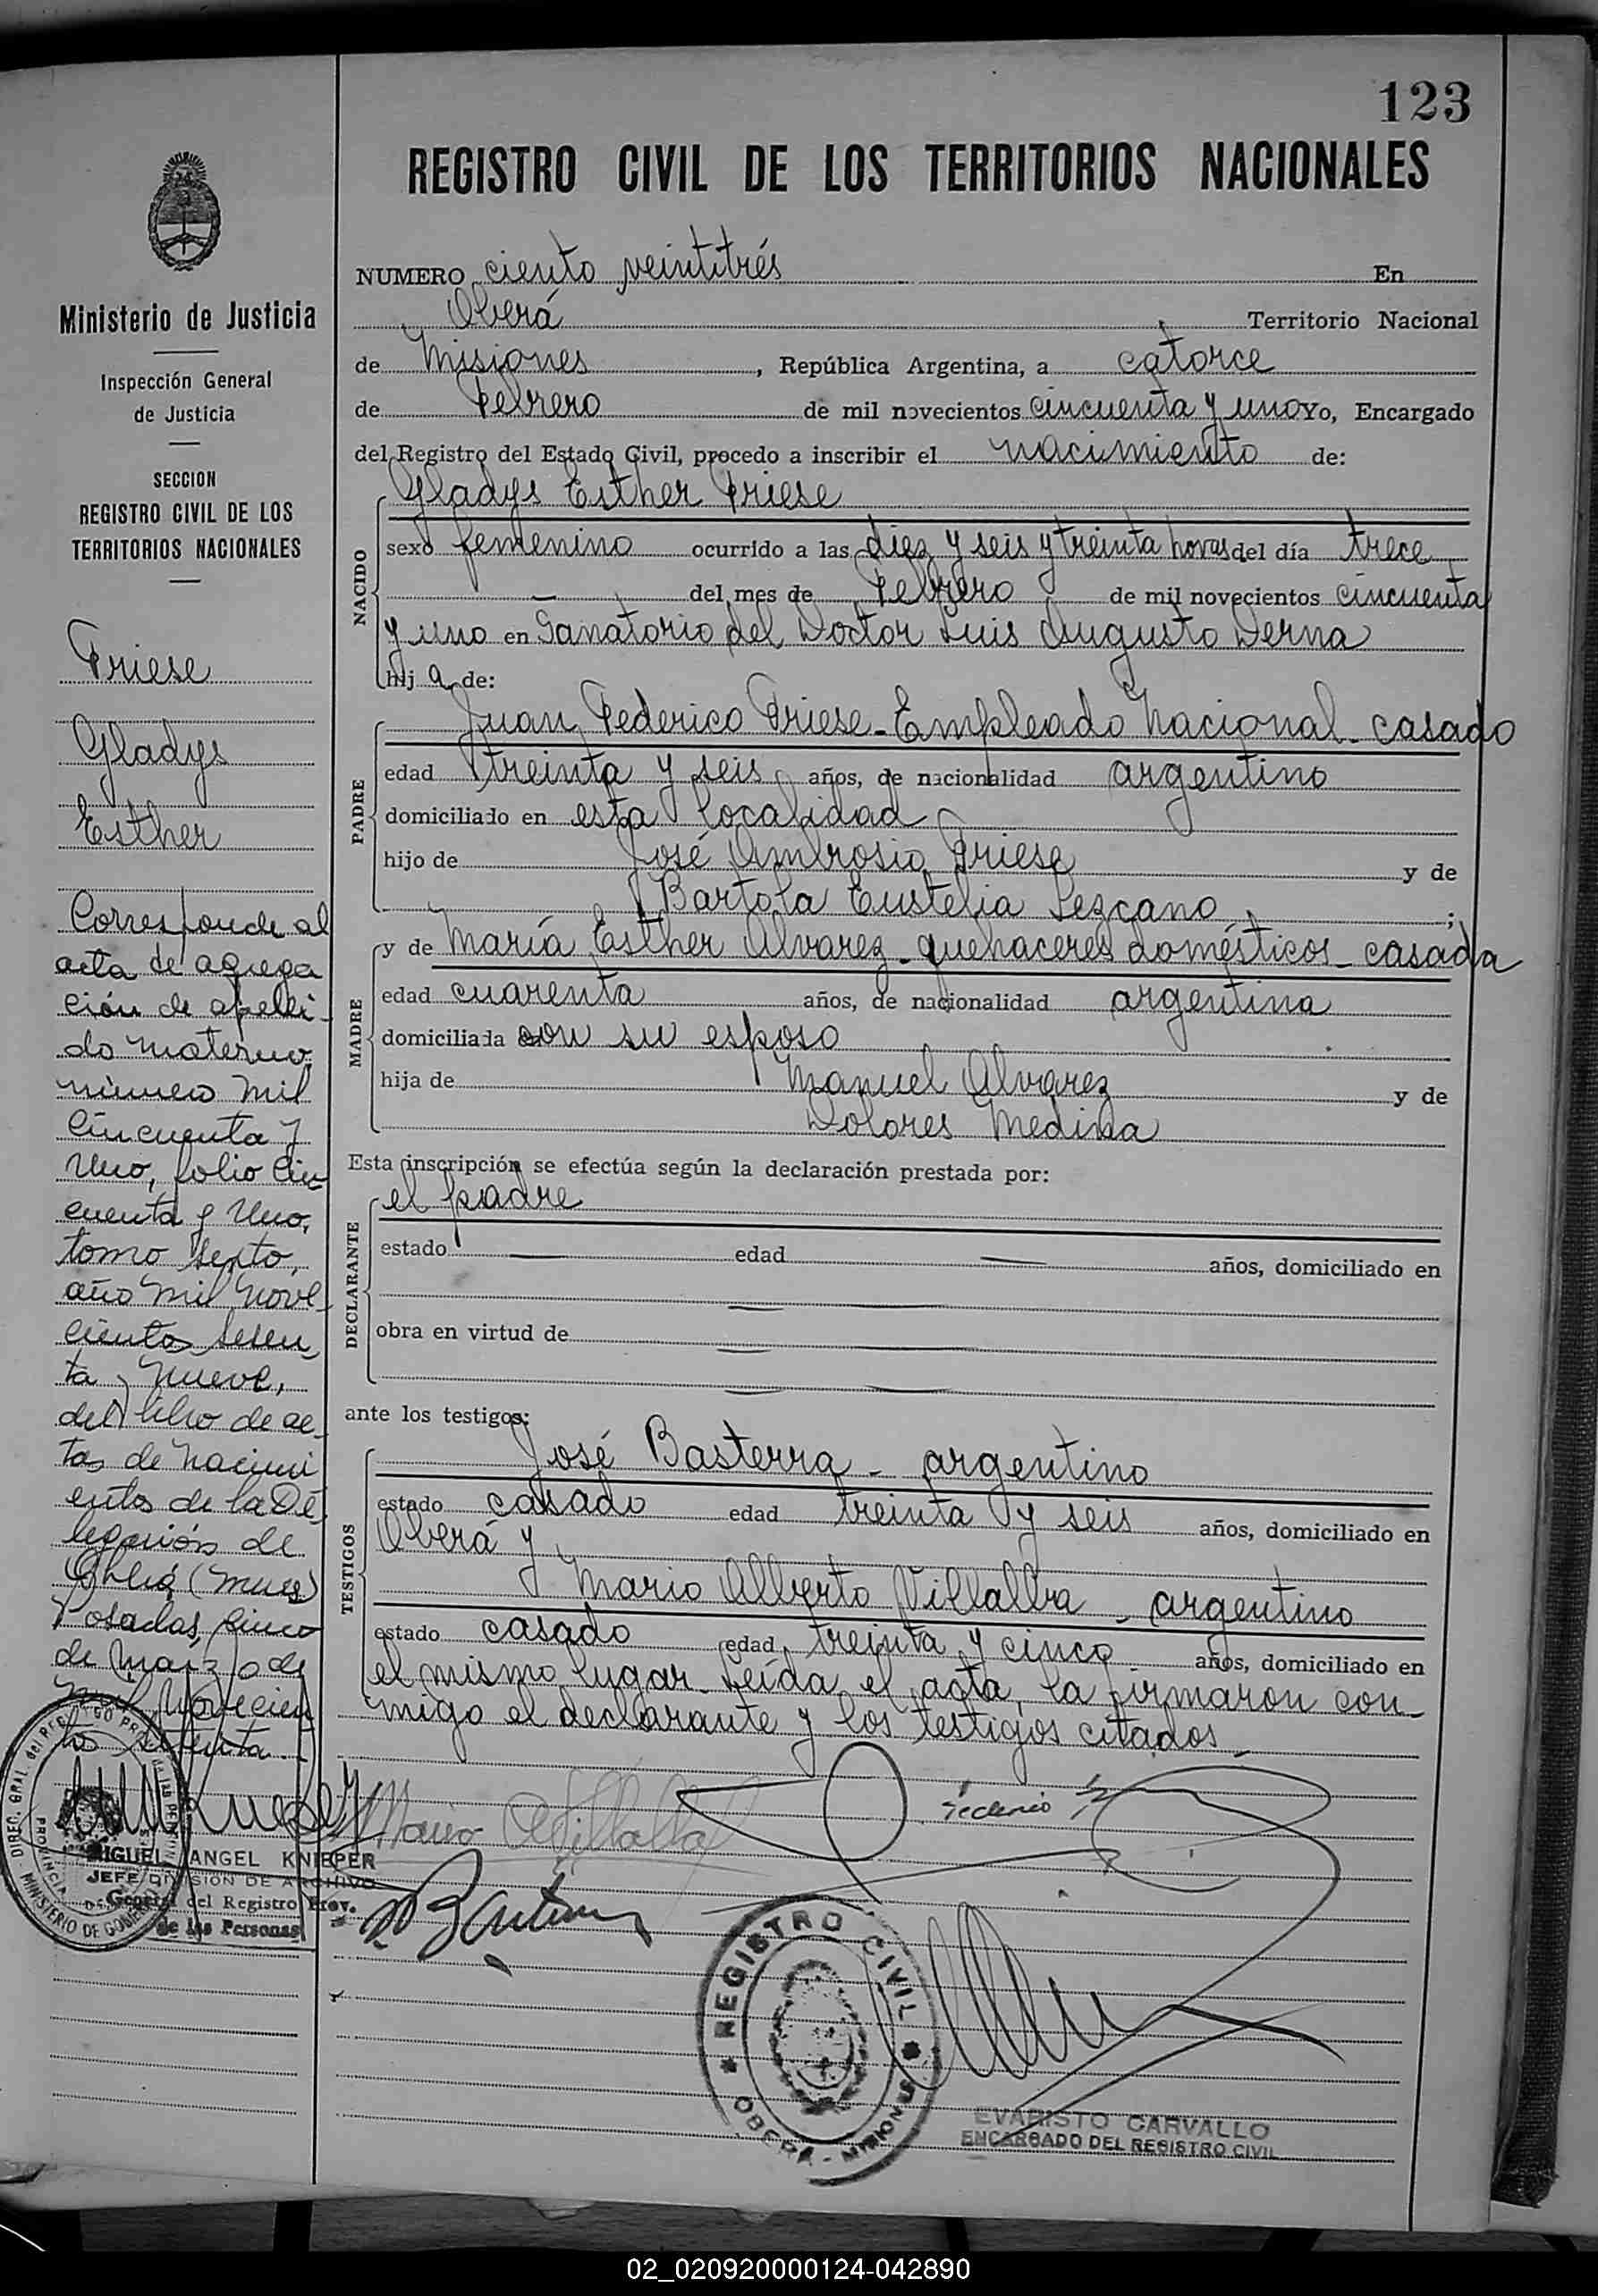 123
REGISTRO CIVIL DE LOS TERRITORIOS NACIONALES
NUMERO ciento veintitrés En
Oberá Territorio Nacional
de Misiones, República Argentina, a catorce
de Febrero de mil novecientos cincuenta y uno Yo, Encargado
del Registro del Estado Civil, procedo a inscribir el nacimiento de:
NACIDO
Gladys Esther Friese
sexo femenino ocurrido a las diez y seis y treinta horas del día trece
— del mes de Febrero de mil novecientos cincuenta
y uno en Sanatorio del Doctor Luis Augusto Derna
hija de:
PADRE
Juan Federico Friese - Empleado Nacional - casado
edad treinta y seis años, de nacionalidad argentino
domiciliado en esta localidad
hijo de José Ambrosio Friese y de
Bartola Eustelia Lezcano ;
MADRE
y de María Esther Alvarez - quehaceres domésticos - casada
edad cuarenta años, de nacionalidad argentina
domiciliada con su esposo
hija de Manuel Alvarez y de
Dolores Medina
Esta inscripción se efectúa según la declaración prestada por:
DECLARANTE
el padre
estado — edad — años, domiciliado en
obra en virtud de
ante los testigos:
TESTIGOS
José Basterra - argentino
estado casado edad treinta y seis años, domiciliado en
Oberá y
Mario Alberto Villalba - argentino
estado casado edad treinta y cinco años, domiciliado en
el mismo lugar. Leída el acta, la firmaron con-
migo el declarante y los testigos citados -
Mario A Villalba
REGISTRO CIVIL
OBERA - MISIONES
EVARISTO CARVALLO
ENCARGADO DEL REGISTRO CIVIL
Ministerio de Justicia
Inspección General
de Justicia
SECCION
REGISTRO CIVIL DE LOS
TERRITORIOS NACIONALES
Friese
Gladys
Esther
Corresponde al
acta de agrega
ción de apelli-
do materno
número mil
cincuenta y
uno, folio cin-
cuenta y uno,
tomo sexto,
año mil nove-
cientos sesen-
ta y nueve,
del libro de ac-
tas de nacimi
entos de la De-
legación de
Oberá (Mnes)
Posadas, cinco
de marzo de
mil novecien
tos setenta.-
MIGUEL ANGEL KNIEPER
JEFE DIVISION DE ARCHIVO
General del Registro Prov.
de las Personas
02_020920000124-042890